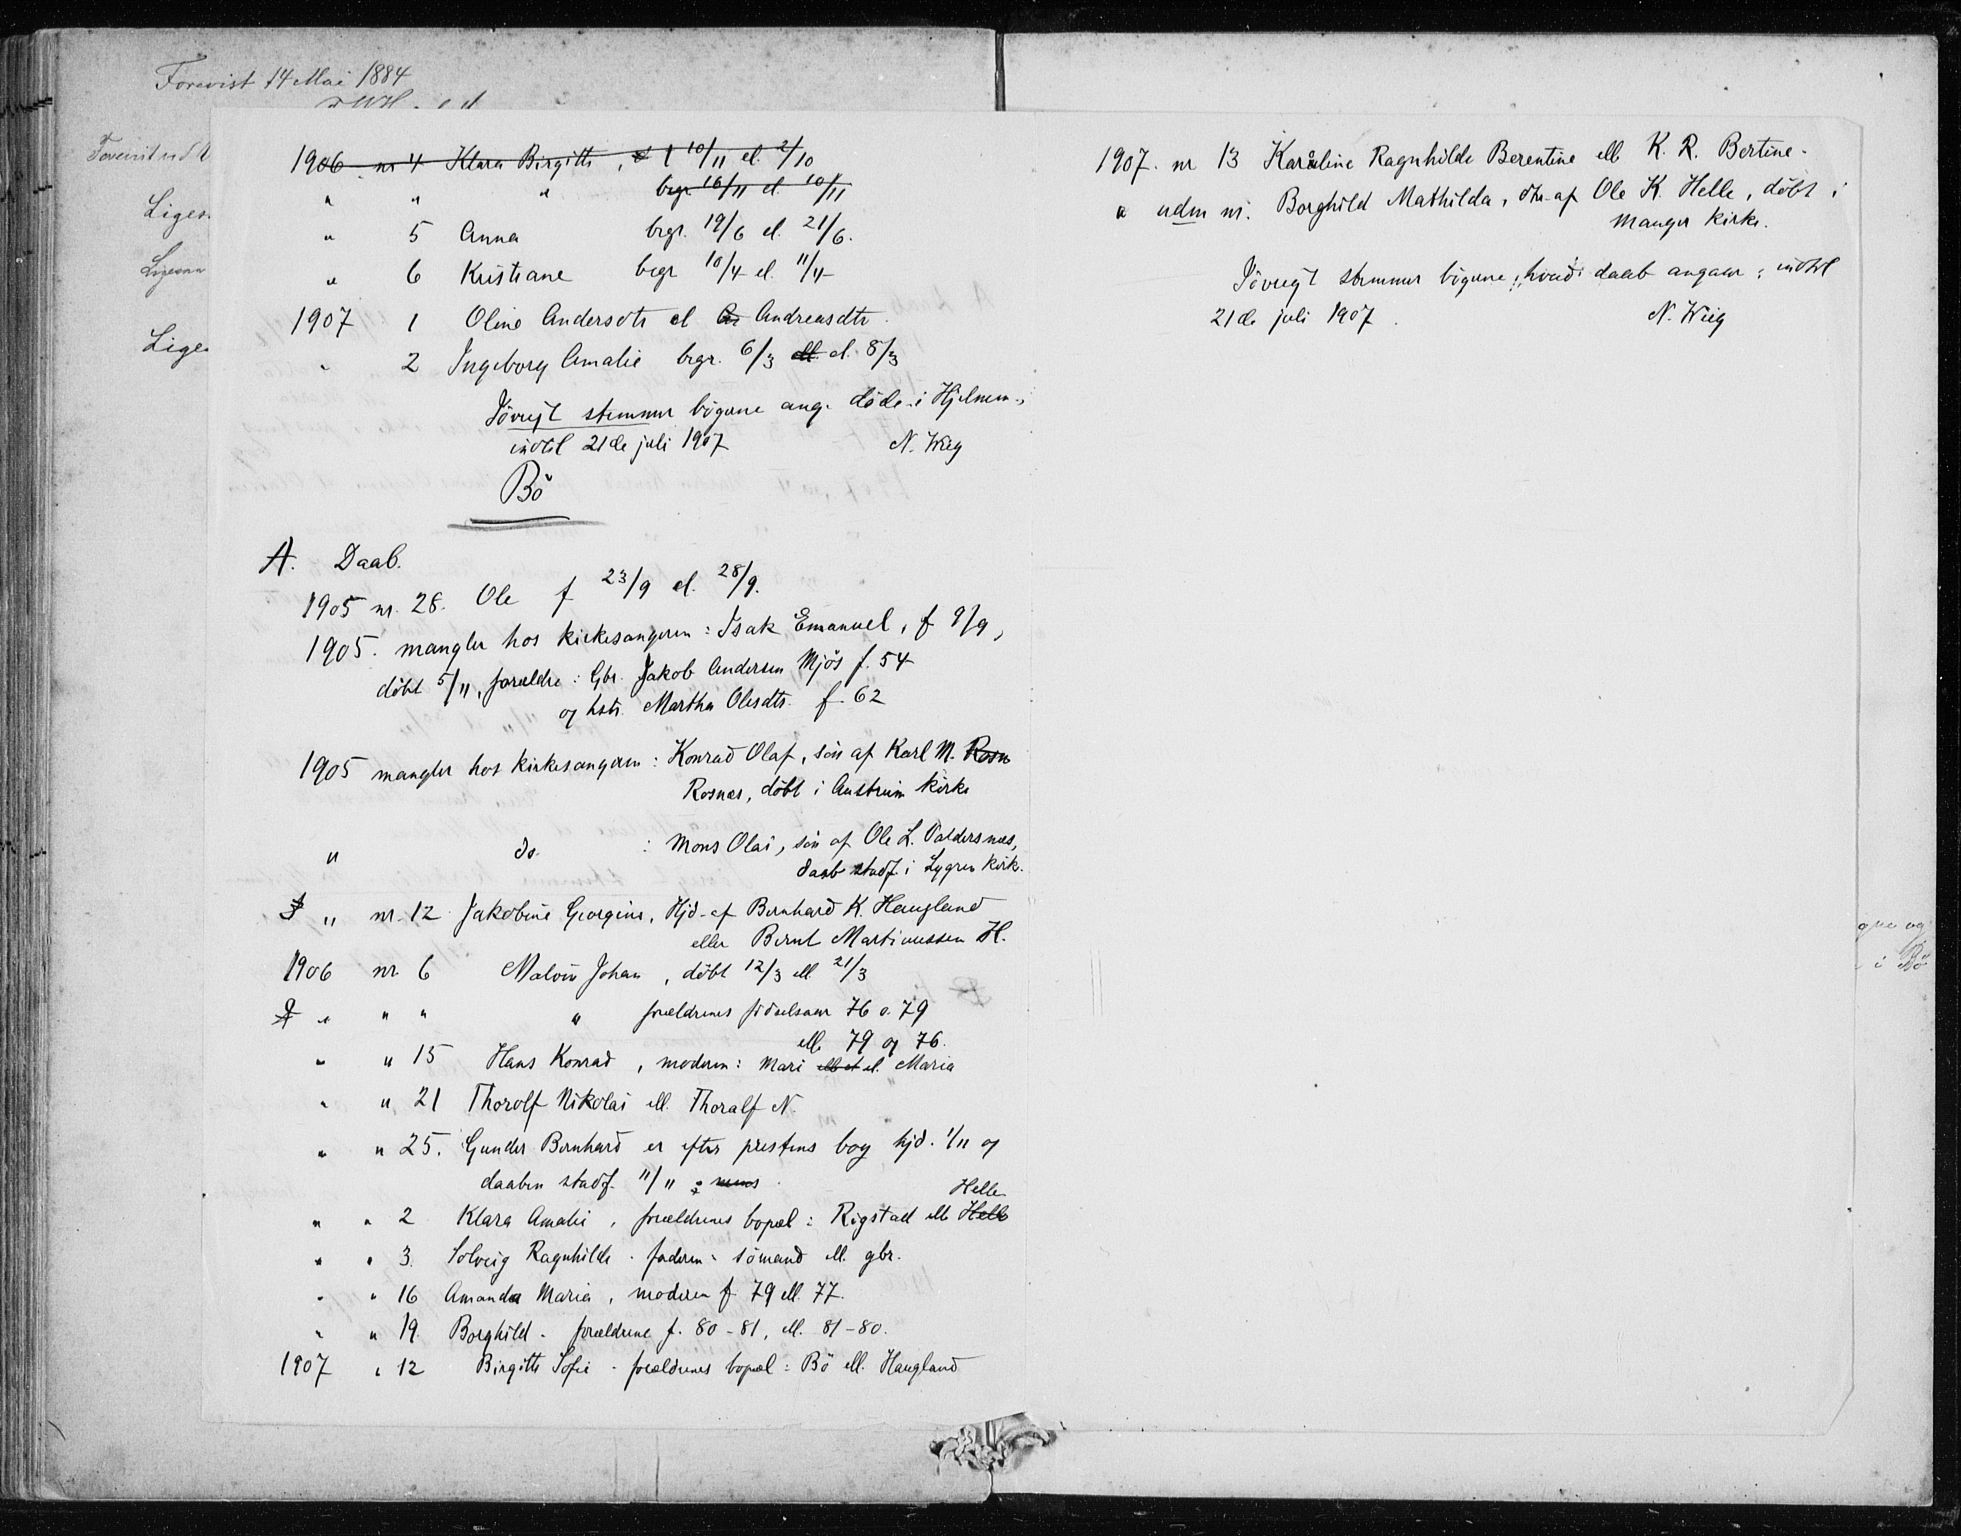 Forevist 14 Mai 1884
Forevist
Liges
Ligesaa
Lige
1906 nr 4 Klara Birgitte, † 10/11 el. 2/10
" " " begr. 16/11 el. 10/11
" 5 Anna begr. 19/6 el. 21/6.
" 6 Kristiane begr 10/4 el. 11/4
1907 1 Oline Andersdtr el An Andreasdtr.
" 2 Ingeborg Amalie begr. 6/3 ell. el. 8/3
Iøvrigt stemmer bøgerne ang. døde i Hjelmen.,
indtil 21de juli 1907 N. Wiig
Bö
A. Daab.
1905 nr. 28. Ole f 23/9 el. 28/9.
1905. mangler hos kirkesangeren: Isak Emanuel, f 9/9,
döbt 5/11, forældre: Gbr. Jakob Andersen Mjös f. 54
og hstr. Martha Olesdtr. f. 62
1905 mangler hos kirkesangeren: Konrad Olaf, sön af Karl M. Rosn
Rosnes, döbt i Austrheim kirke
" do. : Mons Olai, sön af Ole L. Valdersnes,
daab stadf. i Lygren kirk.
" nr. 12 Jakobine Georgine, Hjd. af Bernhard K. Haugland
eller Bernt Martinussen H.
1906 nr 6 Malvin Johan, döbt 12/3 ell 21/3
" " " " forældrenes födselsaar 76 o. 79
ell. 79 og 76.
" " 15 Hans Konrad, moderen: Mari ell et el. Maria
" " 21 Thorolf Nikolai ell. Thoralf N.
" " 25. Gunder Bernhard er efter prestens bog hjd. 1/11 og
daaben stadf. 11/11
" " 2 Klara Amalie, forældrenes bopæl: Rigstad ell. Helle Helle
" " 3. Solveig Ragnhilde. faderen: sömand ell. gbr.
" " 16 Amanda Maria, moderen f. 79 ell. 77.
" " 19. Borghild. forældrene f. 80-81, ell. 81-80.
1907 " 12 Birgitte Sofie. forældrenes bopæl: Bö ell. Haugland
1907. nr 13 Karoline Ragnhilde Berentine ell K. R. Bertine.
" udm nr. Borghild Mathilda, dtr. af Ole K. Helle, döbt i
Manger kirke.
Iövrigt stemmer bögerne, hvad daab angaar, indtil
21de juli 1907. N. Wiig
og
i Bö